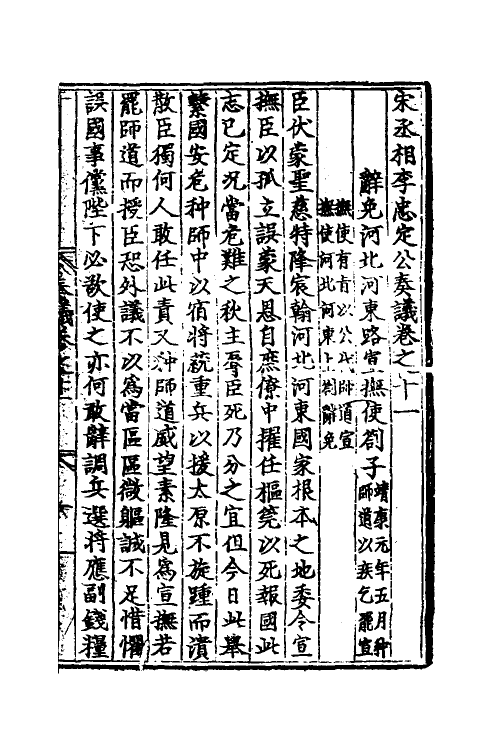 宋丞相李忠定公奏議卷之十一
辭免河北河東路宣撫使劄子靖康元年五月种師道以疾乞罷宣
撫使有旨以公代師道宣撫使河北河東上劄辭免
臣伏蒙聖慈特降宸翰河北河東國家根本之地委令宣
撫臣以孤立誤蒙天恩自庶僚中擢任樞筦以死報國此
志已定况當危難之秋主辱臣死乃分之宜但今日此舉
繫國安危种師中以宿將統重兵以援太原不旋踵而潰
散臣獨何人敢任此責又种師道威望素隆見為宣撫若
罷師道而授臣恐外議不以為當區區微軀誠不足惜懼
誤國事儻陛下必欲使之亦何敢辭調兵選將應副錢糧